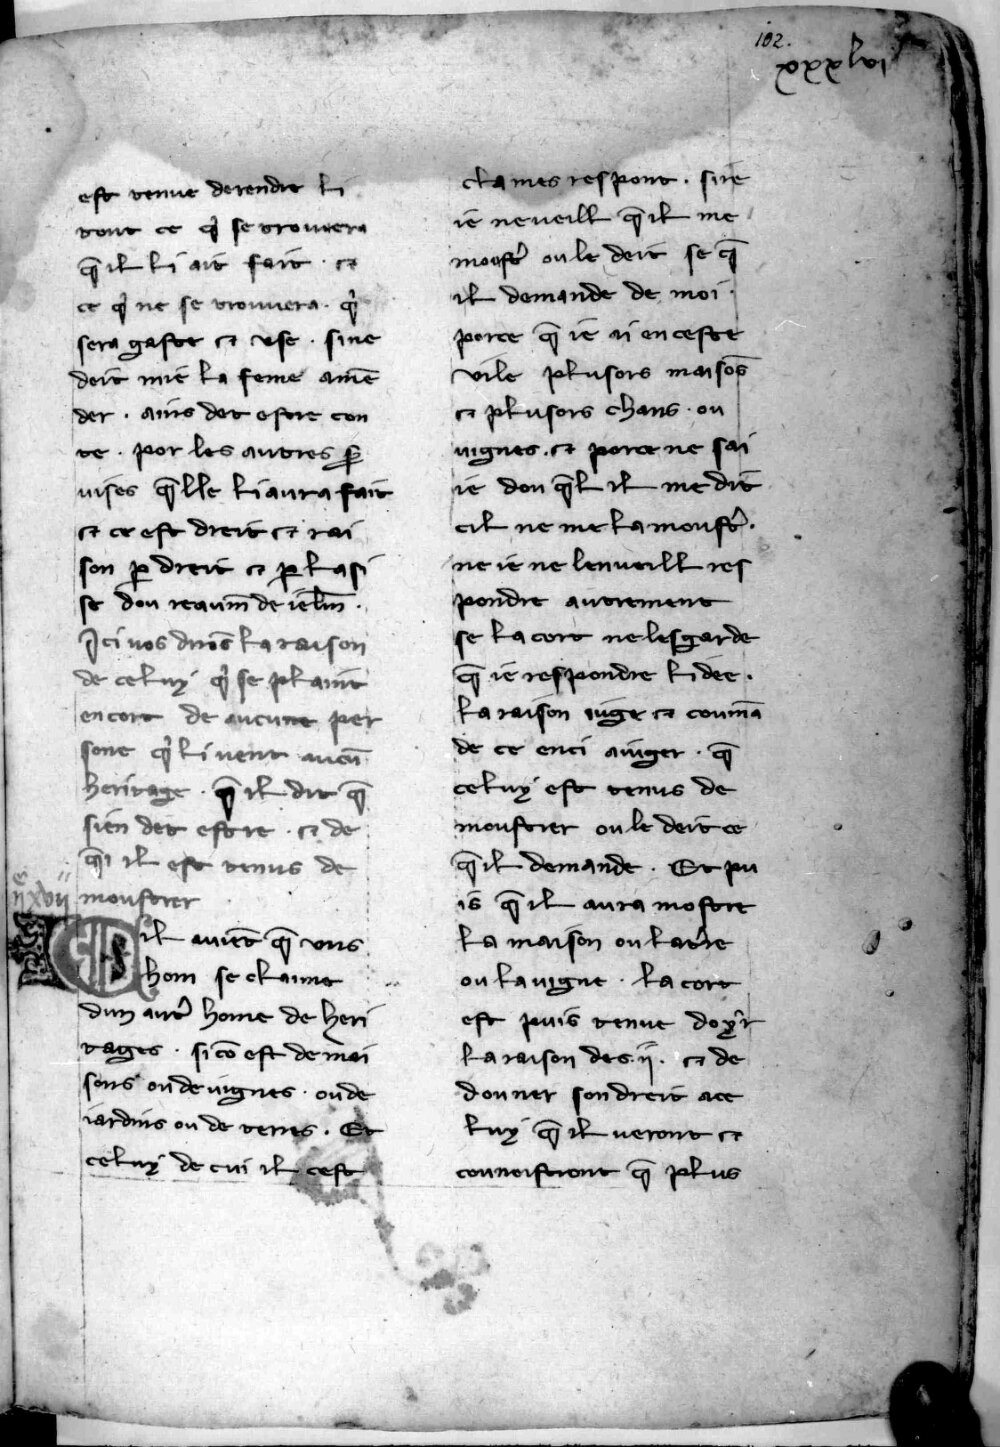 102.
xxxlvi
est tenue de rendre li
tout ce q̾ se trouuera
q̄ il li ait fait · ⁊
ce q̾ ne se trouuera · q̾
sera gaste ⁊ vse · si ne
deit mie la feme amē
der · ains det estre con
te · por les autres s̄
uises q̄lle li aura fait
⁊ ce est dreit ⁊ rai
son p̄ dreit ⁊ p̄ lasi
se dou reaum̄ de ierl̄m ·
Ici uos dirōs la raison
de celuy q̾ se plaint
en cort de aucune per
sone q̾ li tient aucū
heritage · q̄ il dit q̄
sien det estre · ⁊ de
q̄i il est tenus de
moustrer
ijͨxvij
Sil auiēt q̄ vns
hom se claime
dun autr̾ home de heri
tages · si cō est de mai
sons ou de uignes · ou de
iardins ou de terres · Et
celuy de cui il cest
clames respont · sire
ie ne ueill q̄ il me
mostr̾ ou le deit se q̄
il demande de moi ·
por ce q̄ ie ai en ceste
vile plusors maisōs
⁊ plusors chans · ou
uignes · ⁊ por ce ne sai
ie don q̄l il me dit
cil ne me la moustr̾ ·
ne ie ne len ueill res
pondre autrement
se la cort ne lesgarde
q̄ ie respondre li dee ·
la raison iuge ⁊ coumā
de ce enci a iuger · q̄
celuy est tenus de
moustrer ou le deit ce
q̄ il demande · Et pu
is q̄ il aura mostre
la maison ou la tr̾re
ou la uigne · la cort
est puis tenue doyr
la raison des · ij · ⁊ de
douner son dreit a ce
luy q̄ il ueront ⁊
counoistront q̄ plus